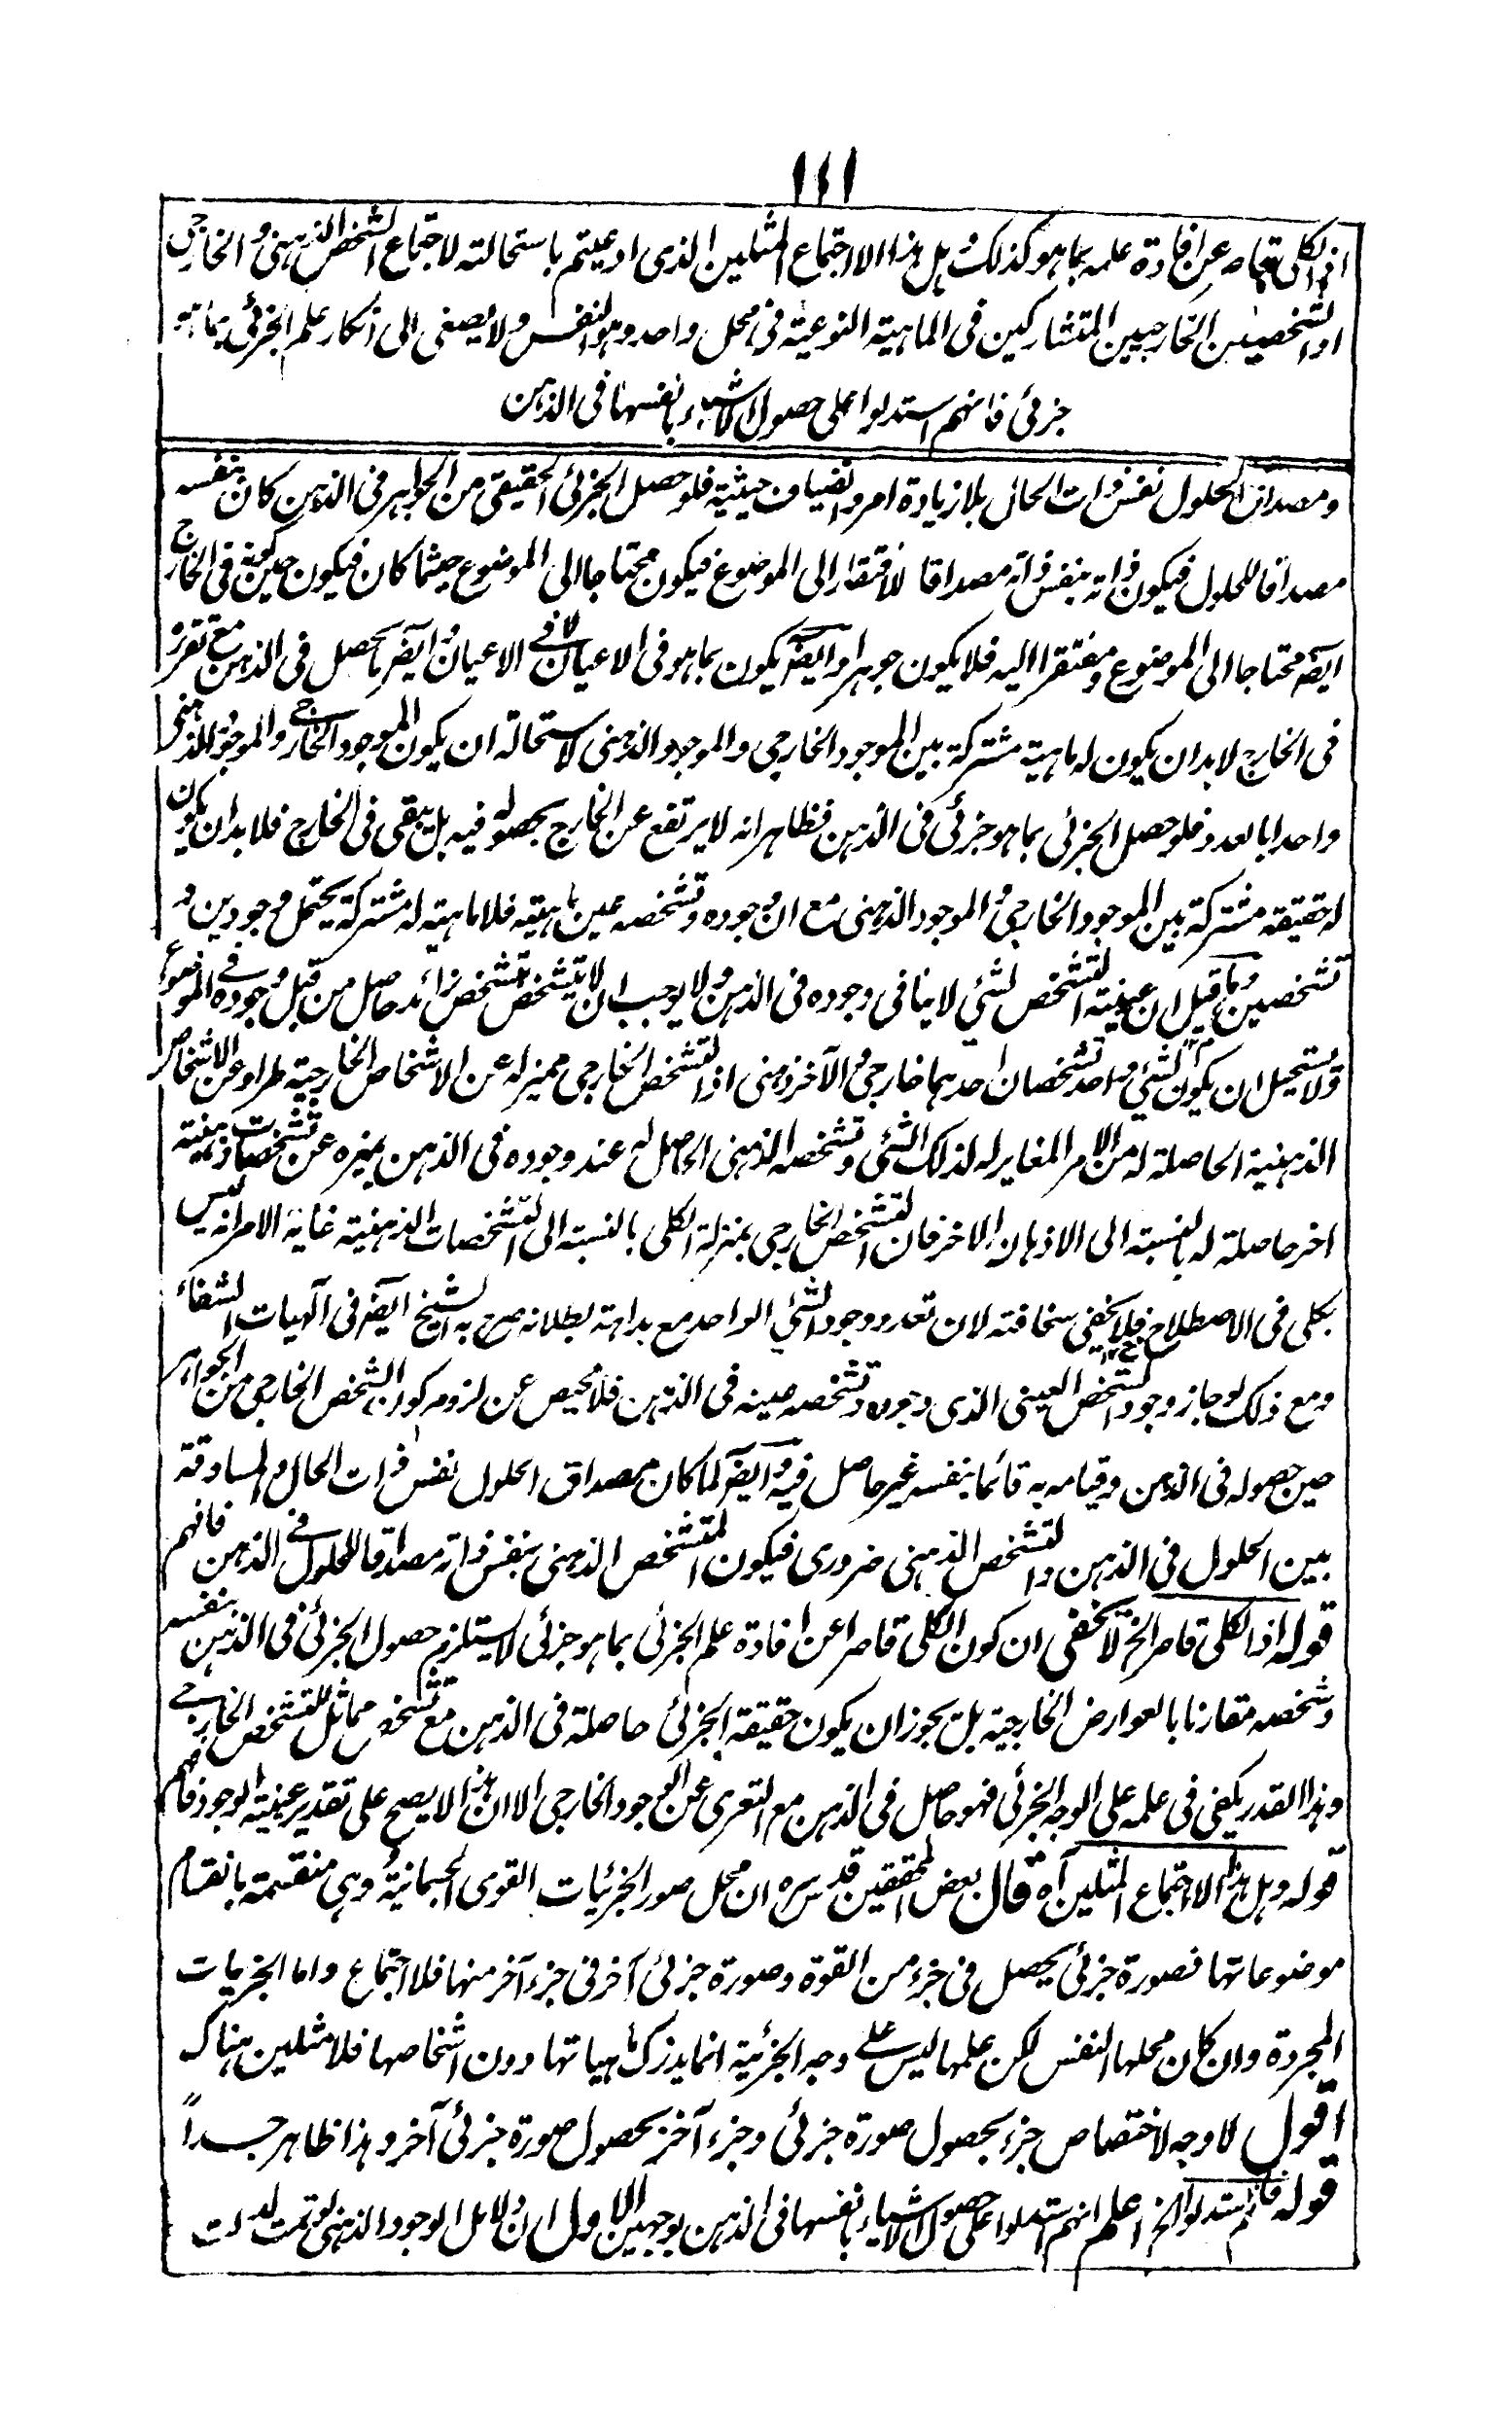 ١٤١
اذ الكلى قاصر عن افادة علمه بما هو كذلك وهل هذا الا اجتماع المثلين الذى ادعيتم باستحالته لاجتماع الشخص الذهنى والخارجى
او الشخصين الخارجيين المتشاركين فى الماهية النوعية فى محل واحد وهو النفس ولا يصغى الى انكار علم الجزئى بما هو
جزئى فانهم استدلوا على حصول الاشياء بانفسها فى الذهن
ومصداق الحلول نفس ذات الحال بلا زيادة امر وانضياف حيثية فلو حصل الجزئى الحقيقى من الجواهر فى الذهن كان بنفسه
مصداقا للحلول فيكون ذاته بنفس ذاته مصداقا لافتقار الى الموضوع فيكون محتاجا الى الموضوع حيثما كان فيكون حين كونه فى الخارج
ايضا محتاجا الى الموضوع ومفتقرا اليه فلا يكون جوهرا وايضا يكون بما هو فى الاعيان لا فى الاعيان وايضا ما يحصل فى الذهن مع تقرره
فى الخارج لا بد ان يكون له ماهية مشتركة بين الموجود الخارجى والموجود الذهنى لاستحالة ان يكون الموجود الخارجى والموجود الذهنى
واحدا بالعدد فلو حصل الجزئى بما هو جزئى فى الذهن فظاهر انه لا يرتفع عن الخارج بحصوله فيه بل يبقى فى الخارج فلا بد ان يكون
له حقيقة مشتركة بين الموجود الخارجى والموجود الذهنى مع ان وجوده وتشخصه عين ماهيته فلا ماهية له مشتركة يحتمل وجودين و
تشخصين وما قيل ان عينية التشخص لشئ لا ينافى وجوده فى الذهن ولا يوجب ان لا يتشخص بتشخص زائد حاصل من قبل وجوده فى الموضوع
ولا يستحيل ان يكون لشئ واحد تشخصان احدهما خارجى والآخر ذهنى اذ التشخص الخارجى مميز له عن الاشخاص الخارجية طرا وعن الاشخاص
الذهنية الحاصلة له من الامر المغاير له لذلك الشئ وتشخصه الذهنى الحاصل له عند وجوده فى الذهن يميزه عن تشخصات ذهنية
اخر حاصلة له بالنسبة الى الاذهان الاخر فان التشخص الخارجى بمنزلة الكلى بالنسبة الى التشخصات الذهنية غاية الامر انه ليس
بكلى فى الاصطلاح فلا يخفى سخافته لان تعدد وجود الشئ الواحد مع بداهة بطلانه صرح به الشيخ ايضا فى آلهيات الشفاء
ومع ذلك لو جاز وجود الشخص العينى الذى وجوده وتشخصه عينه فى الذهن فلا محيص عن لزوم كون الشخص الخارجى من الجواهر
حين حصوله فى الذهن وقيامه به قائما بنفسه غير حاصل فيه وايضا لما كان مصداق الحلول نفس ذات الحال والمساوقة
بين الحلول فى الذهن والتشخص الذهنى ضرورى فيكون المتشخص الذهنى بنفس ذاته مصداقا للحلول فى الذهن فافهم
قوله اذ الكلى قاصر الخ لا يخفى ان كون الكلى قاصرا عن افادة علم الجزئى بما هو جزئى لا يستلزم حصول الجزئى فى الذهن بنفسه
وشخصه مقارنا بالعوارض الخارجية بل يجوز ان يكون حقيقة الجزئى حاصلة فى الذهن مع تشخص مماثل للتشخص الخارجى
وهذا القدر يكفى فى علمه على الوجه الجزئى فهو حاصل فى الذهن مع التعرى عن الوجود الخارجى الا ان هذا لا يصح على تقدير عينية الوجود فافهم
قوله وهل هذا الا اجتماع المثلين آه قال بعض المحققين قدس سره ان محل صور الجزئيات القوى الجسمانية وهى منقسمة بانقسام
موضوعاتها فصورة جزئى يحصل فى جزء من القوة وصورة جزئى آخر فى جزء آخر منها فلا اجتماع واما الجزئيات
المجردة وان كان محلها النفس لكن علمها ليس على وجه الجزئية انما يدرك ماهياتها دون اشخاصها فلا مثلين هناك
اقول لا وجه لاختصاص جزء بحصول صورة جزئى وجزء آخر بحصول صورة جزئى آخر وهذا ظاهر جداً
قوله فانهم استدلوا الخ اعلم انهم استدلوا على حصول الاشياء بانفسها فى الذهن بوجهين الاول ان دلائل الوجود الذهنى لو تمت لدلت